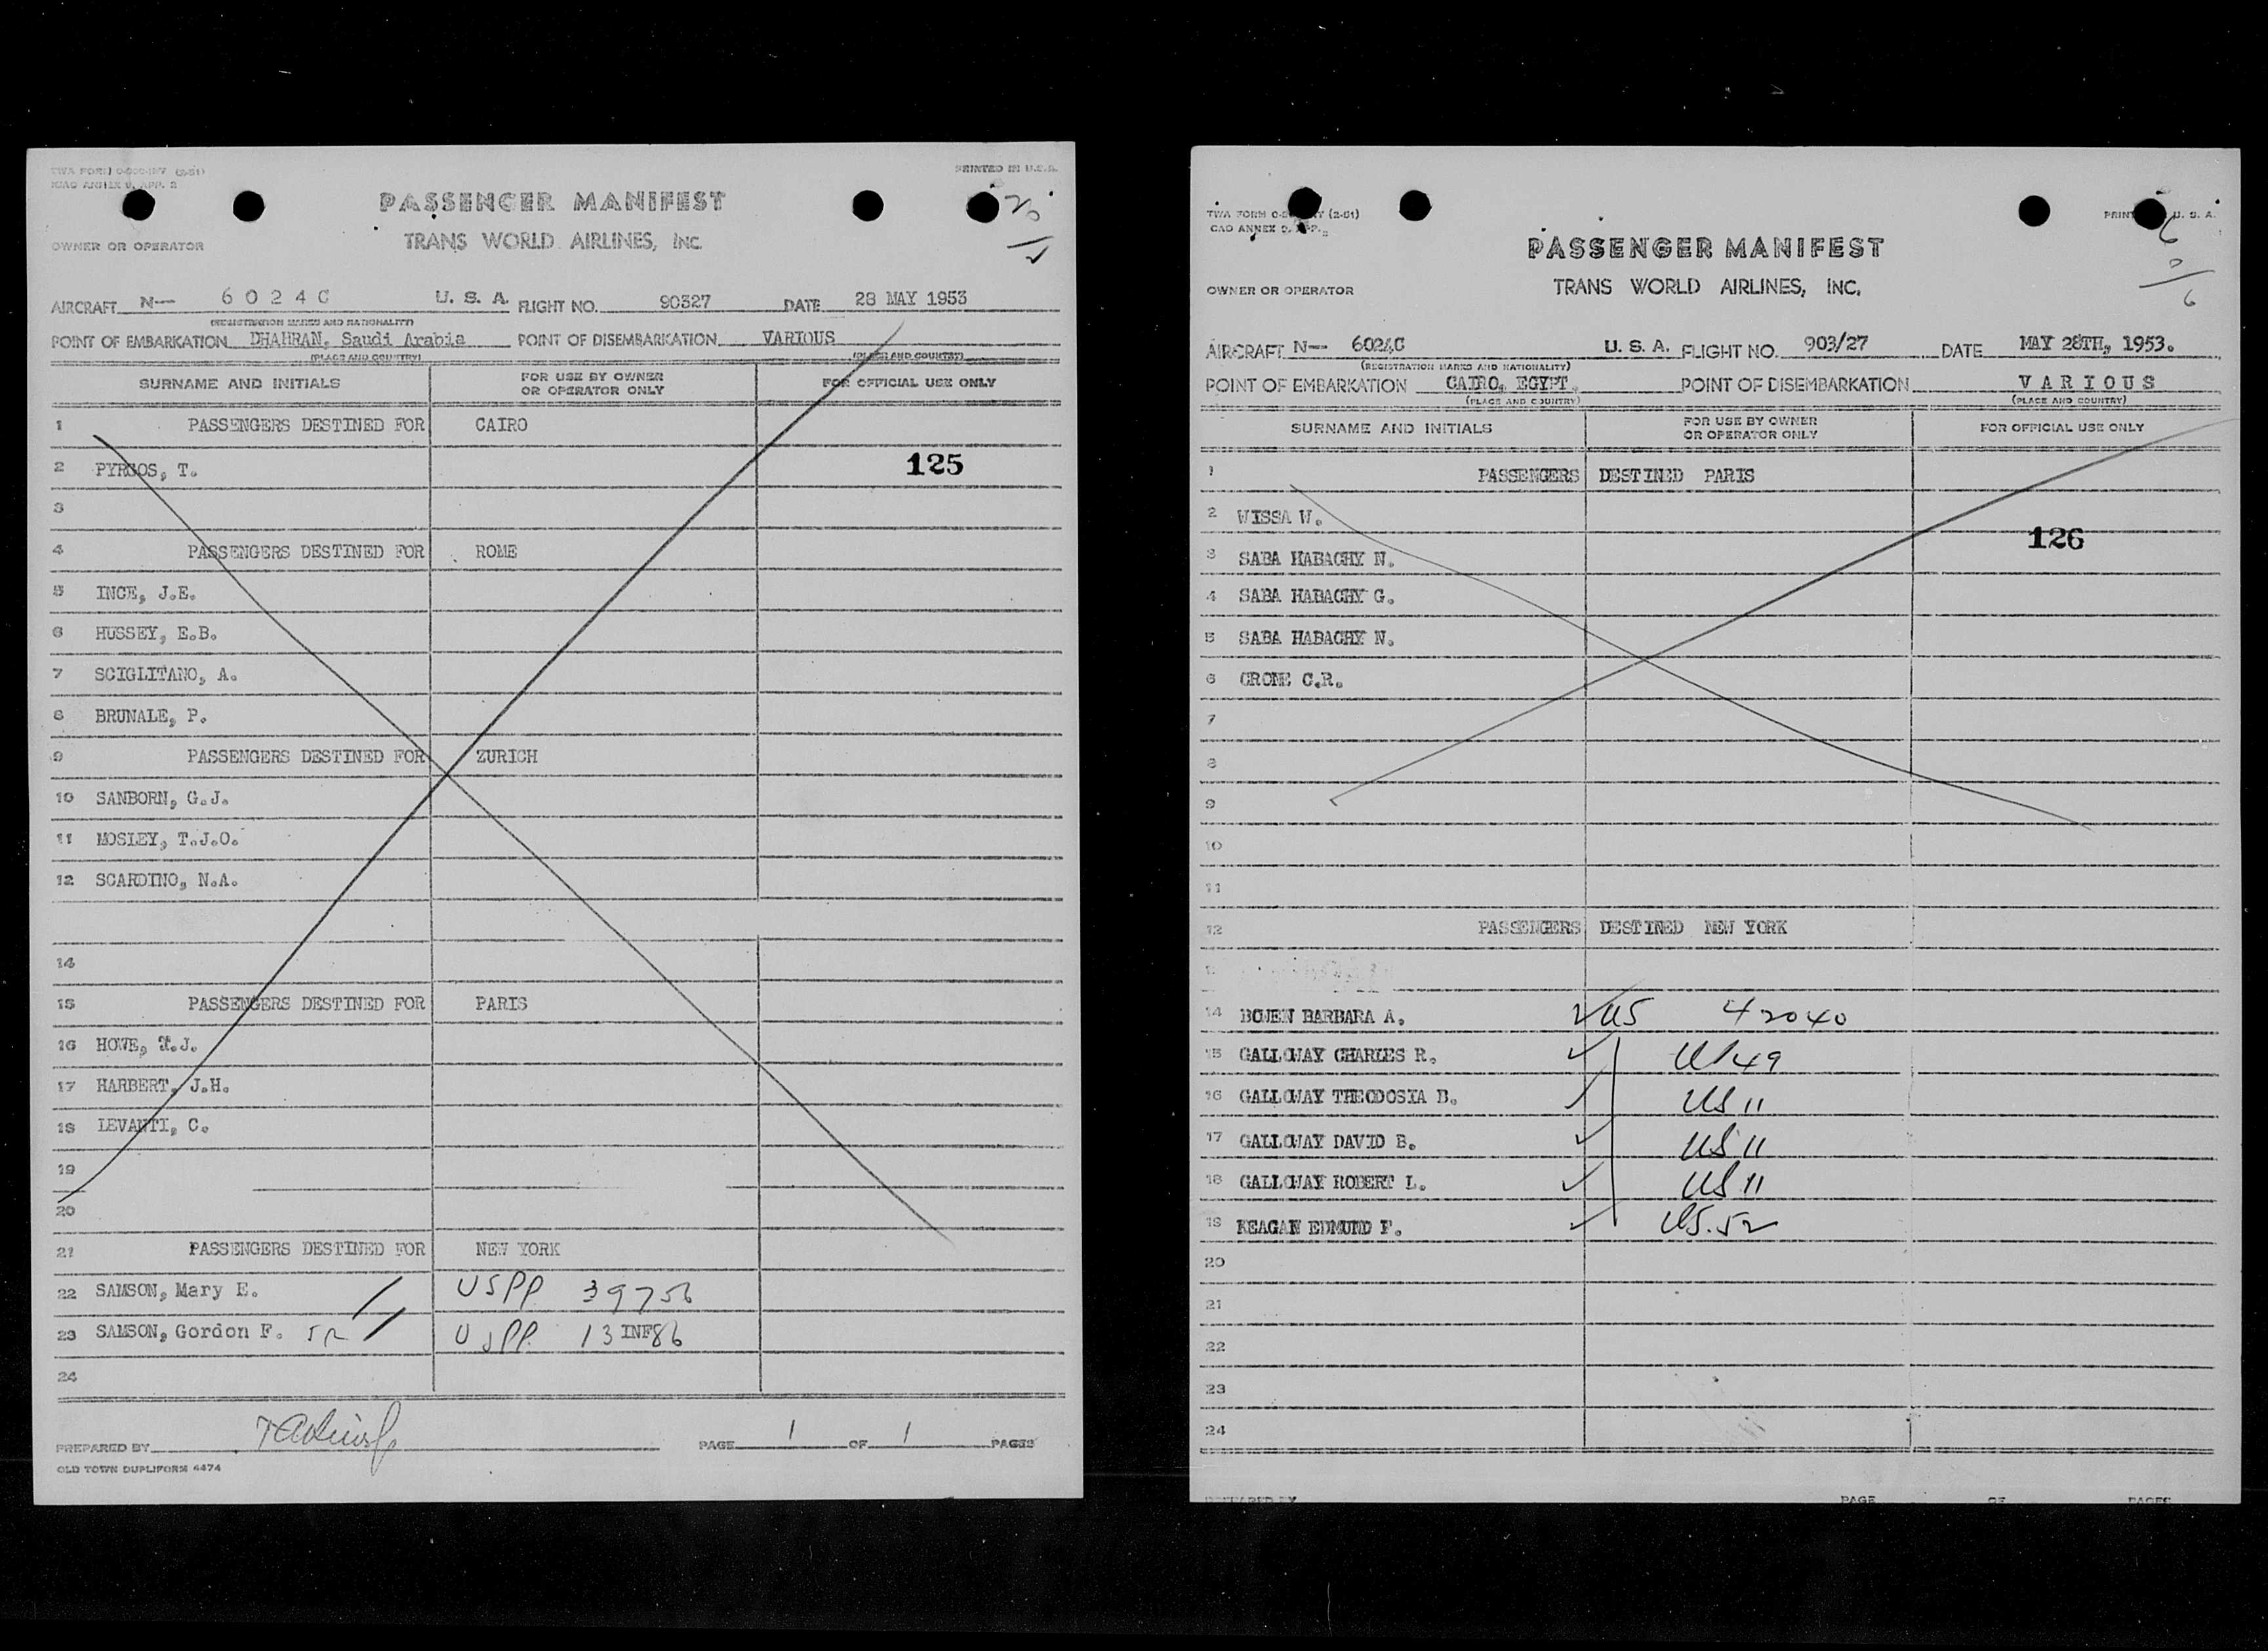 PRINTED IN U.S.A.
PASSENGER MANIFEST
OWNER OR OPERATOR
TRANS WORLD AIRLINES, INC.
AIRCRAFT N— 6 0 2 4 C U. S. A. FLIGHT NO. 90327 DATE 28 MAY 1953
(REGISTRATION MARKS AND NATIONALITY)
POINT OF EMBARKATION DHAHRAN, Saudi Arabia POINT OF DISEMBARKATION VARIOUS
(PLACE AND COUNTRY) (PLACE AND COUNTRY)
SURNAME AND INITIALS FOR USE BY OWNER OR OPERATOR ONLY FOR OFFICIAL USE ONLY
1 PASSENGERS DESTINED FOR CAIRO
2 PYRGOS, T. 125
3
4 PASSENGERS DESTINED FOR ROME
5 INCE, J.E.
6 HUSSEY, E.B.
7 SCIGLITANO, A.
8 BRUNALE, P.
9 PASSENGERS DESTINED FOR ZURICH
10 SANBORN, G.J.
11 MOSLEY, T.J.O.
12 SCARDINO, N.A.
14
15 PASSENGERS DESTINED FOR PARIS
16 HOWE, T.J.
17 HARBERT, J.H.
18 LEVANTI, C.
19
20
21 PASSENGERS DESTINED FOR NEW YORK
22 SAMSON, Mary E. USPP 39756
23 SAMSON, Gordon F. USPP. 13 INF 86
24
PREPARED BY PAGE 1 OF 1 PAGES
OLD TOWN DUPLIFORM 4474
PASSENGER MANIFEST
OWNER OR OPERATOR
TRANS WORLD AIRLINES, INC.
AIRCRAFT N— 6024C U. S. A. FLIGHT NO. 903/27 DATE MAY 28TH, 1953.
(REGISTRATION MARKS AND NATIONALITY)
POINT OF EMBARKATION CAIRO, EGYPT. POINT OF DISEMBARKATION V A R I O U S
(PLACE AND COUNTRY) (PLACE AND COUNTRY)
SURNAME AND INITIALS FOR USE BY OWNER OR OPERATOR ONLY FOR OFFICIAL USE ONLY
1 PASSENGERS DESTINED PARIS
2 WISSA W.
126
3 SABA HABACHY N.
4 SABA HABACHY G.
5 SABA HABACHY N.
6 CRONE C.R.
7
8
9
10
11
12 PASSENGERS DESTINED NEW YORK
14 BOWEN BARBARA A. US 42040
15 GALLOWAY CHARLES R. US 49
16 GALLOWAY THEODOSIA B. US 11
17 GALLOWAY DAVID B. US 11
18 GALLOWAY ROBERT L. US 11
19 KEAGAN EDMUND F. US.52
20
21
22
23
24
PREPARED BY PAGE OF PAGES